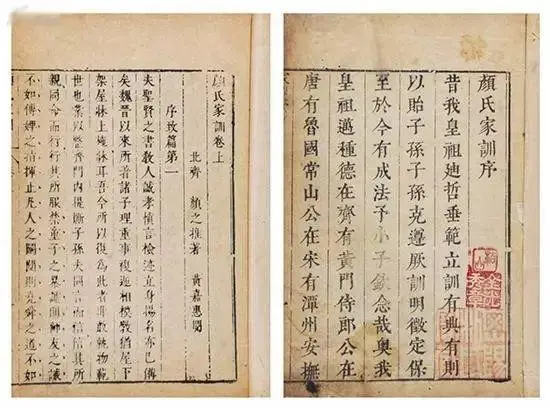 顏氏家訓序
昔我皇祖廸哲垂範立訓有典有則
以貽子孫子孫克遵厥訓明徵定保
至於今有成法予小子念哉奧我
皇祖邁種德在齊有黃門侍郎公在
唐有魯國常山公在宋有潭州安撫
顏氏家訓卷上
北齊 顏之推著 黃嘉惠閱
序致篇第一
夫聖賢之書教人誠孝慎言檢迹立身揚名亦已備
矣魏晉以來所著諸子理重事複遞相模斆猶屋下
架屋牀上施牀耳吾今所以復為此者非敢軌物範
世也業以整齊門內提撕子孫夫同言而信信其所
親同命而行行其所服禁童子之暴謔則師友之誡
不如傅婢之指揮止凡人之鬬鬩則堯舜之道不如